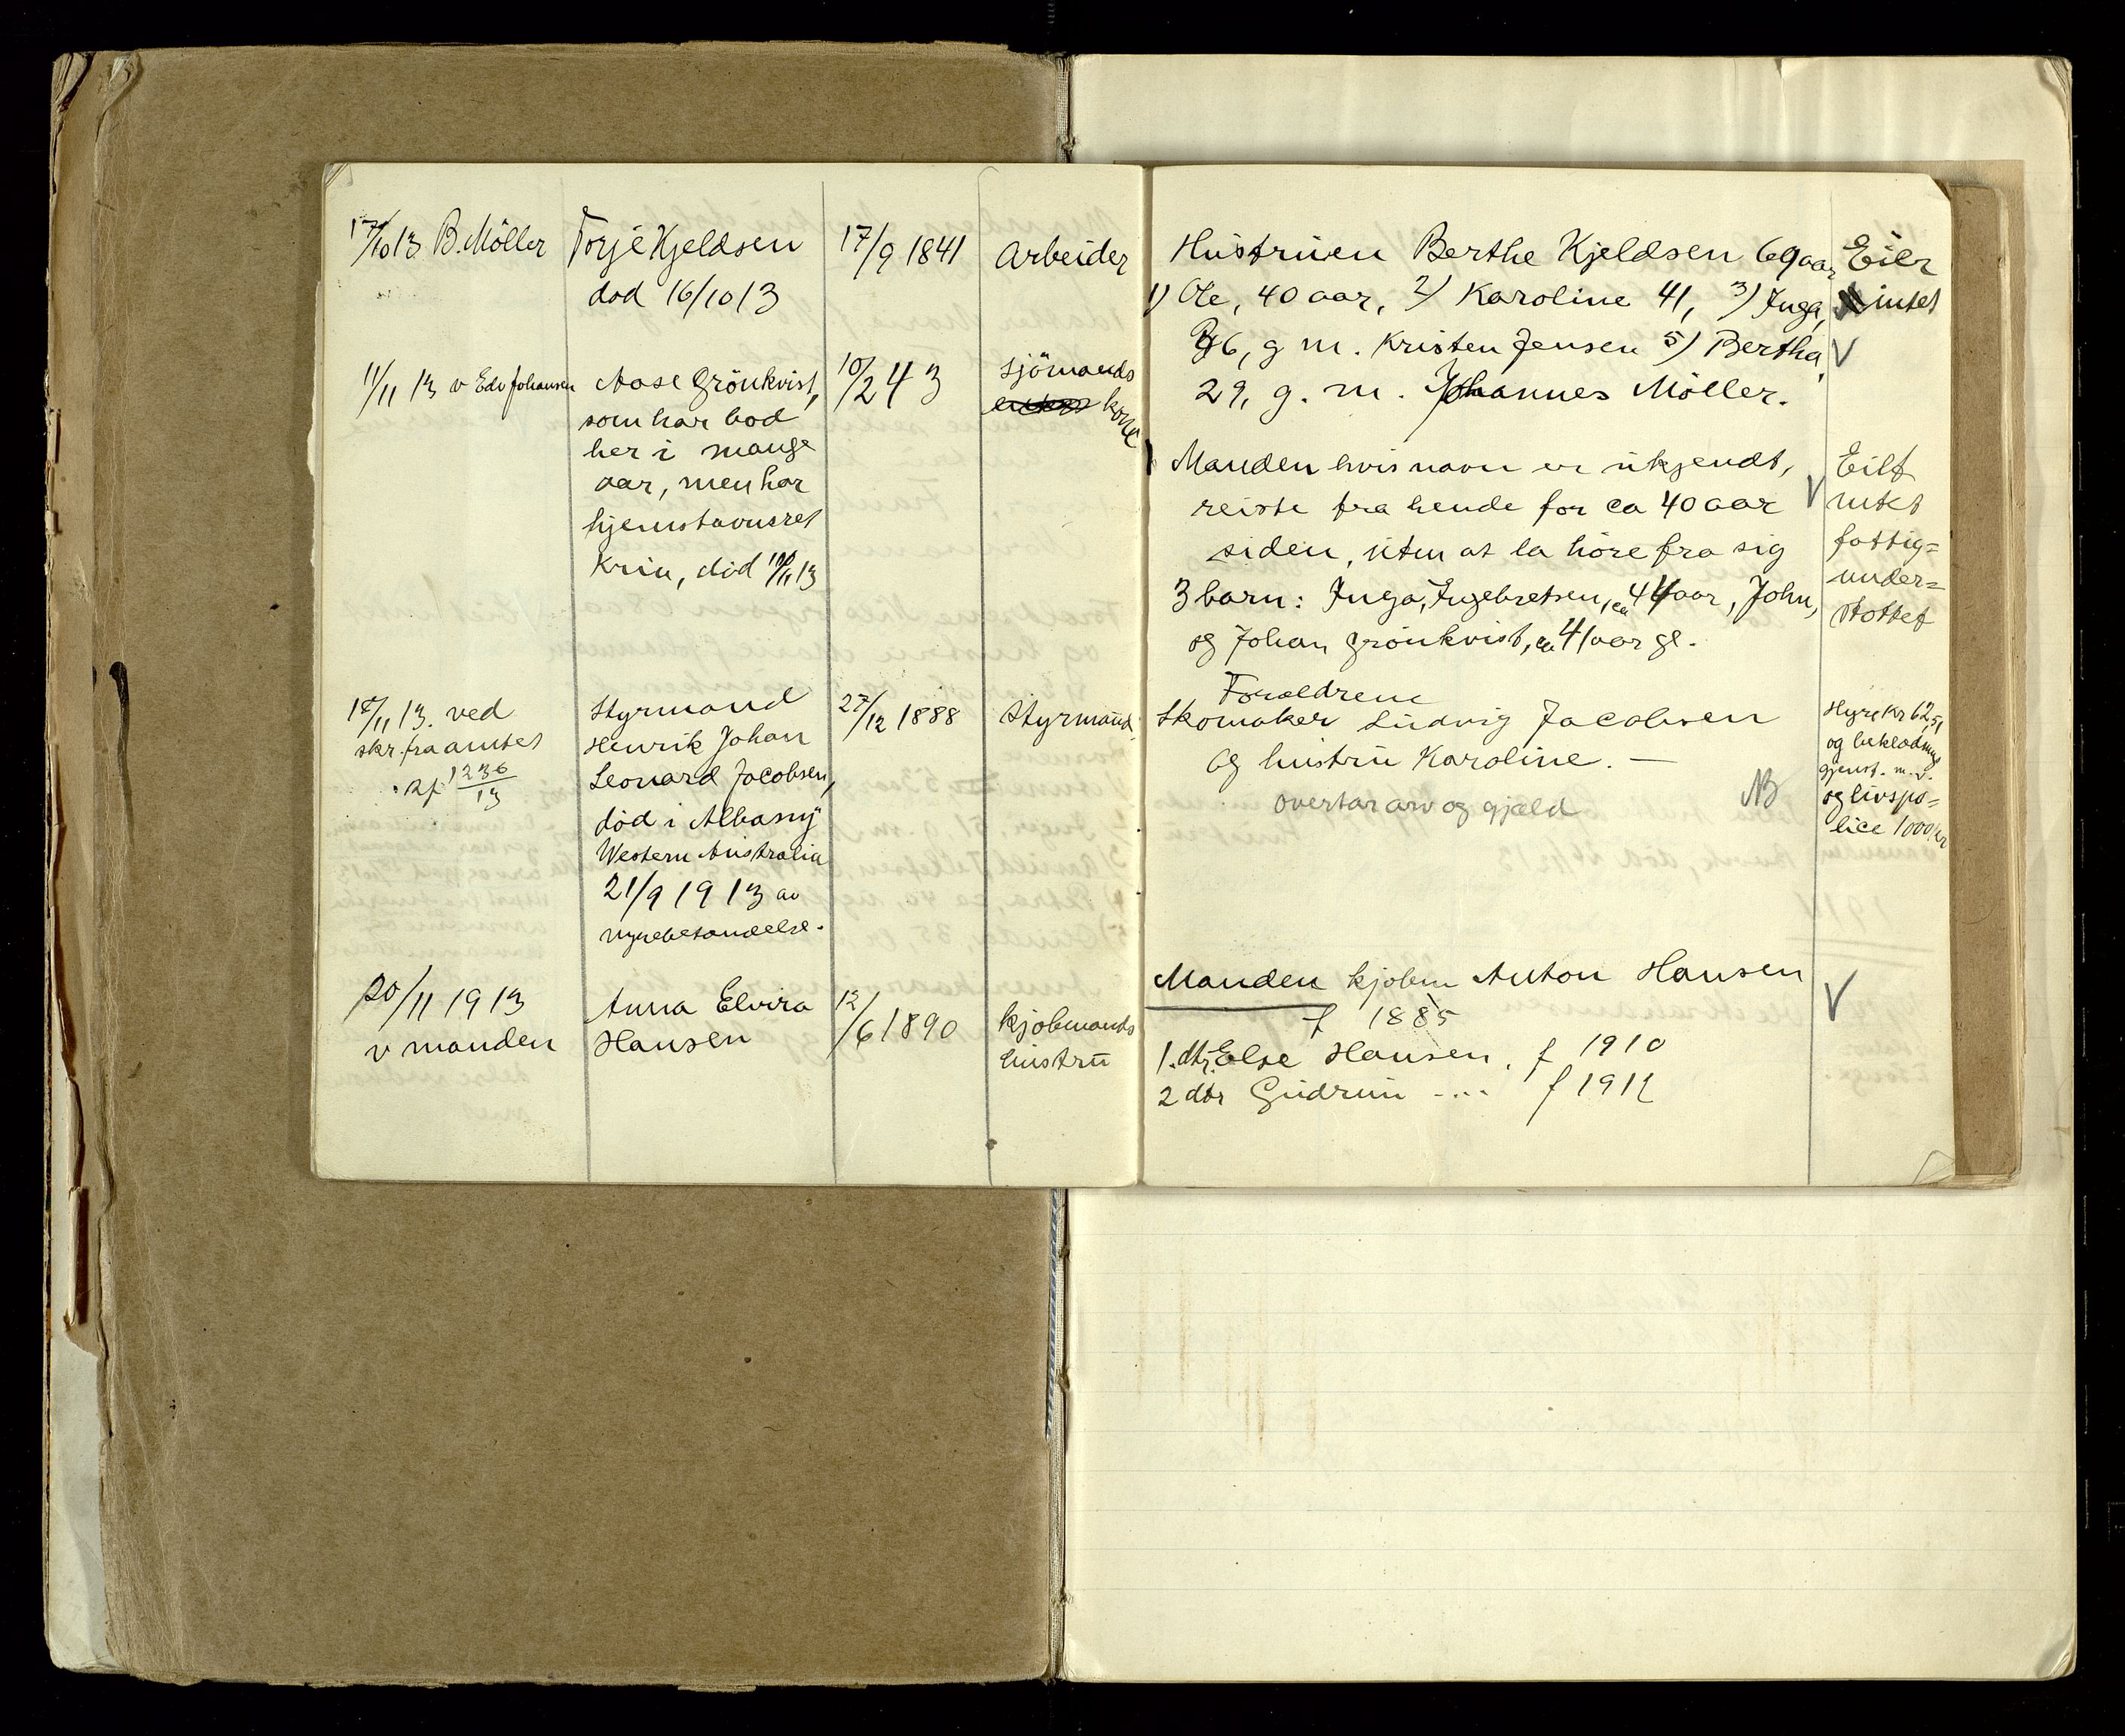 17/10 13 B. Möller
Torje Kjeldsen
död 16/10 13
17/9 1841
Arbeider
Hustruen Berthe Kjeldsen 69 aar
1) Ole, 40 aar, 2) Karoline 41, 3) Inga,
36, g m. Kristen Jensen 5) Bertha,
29, g. m. Johannes Möller.
Eier
intet
11/11 13 v Edv Johansen
Aase Grönkvist,
som har bod
her i mange
aar, men har
hjemstavnsret
Krin, död 10/11 13
10/2 43
Sjömands
kone
Manden hvis navn er ukjendt,
reiste fra hende for ca 40 aar
siden, uten at la höre fra sig
3 barn: Inga, Ingebretsen, ca 44 aar, John,
og Johan Grönkvist, ca 41 aar gl.
Eilt
intet
fattig=
under=
stöttet
18/11 13. ved
skr. fra amtet
1236
13
Styrmand
Henrik Johan
Leonard Jacobsen,
död i Albany
Western Australia
21/9 1913 av
nyrebetændelse.
27/12 1888
Styrmand
Forældrene
Skomaker Ludvig Jacobsen
og hustru Karoline. —
overtar arv og gjæld
NB
Hyre Kr 62,51
og beklædnings
gjenst. m. v.
og livspo=
lice 1000 kr
20/11 1913
v manden
Anna Elvira
Hansen
12/6 1890
kjöbmands
hustru
Manden kjöbm Anton Hansen
f 1885
1. dtr. Else Hansen, f 1910
2 dtr Gudrun -... f 1912